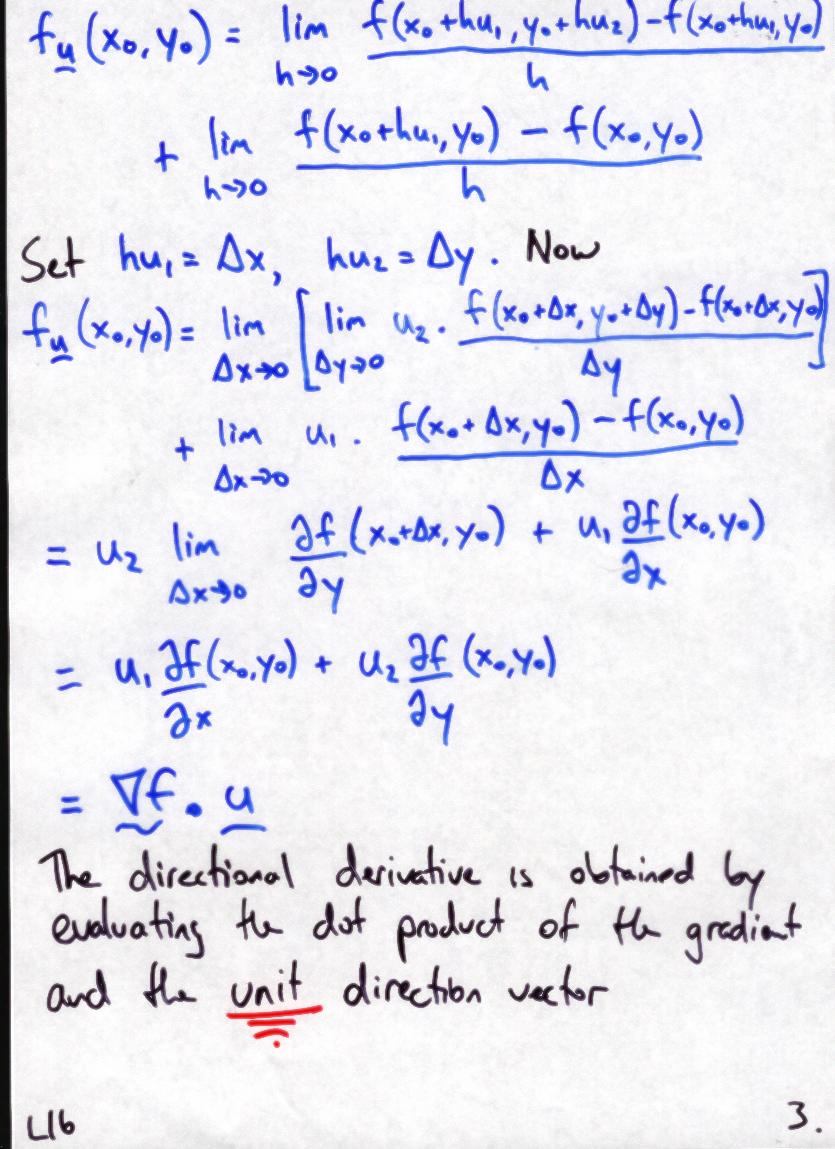 f_u (x₀, y₀) = lim_{h→0} [f(x₀+hu₁, y₀+hu₂) - f(x₀+hu₁, y₀)] / h
+ lim_{h→0} [f(x₀+hu₁, y₀) - f(x₀, y₀)] / h
Set hu₁ = Δx, hu₂ = Δy. Now
f_u (x₀, y₀) = lim_{Δx→0} [ lim_{Δy→0} u₂ · (f(x₀+Δx, y₀+Δy) - f(x₀+Δx, y₀)) / Δy ]
+ lim_{Δx→0} u₁ · (f(x₀+Δx, y₀) - f(x₀, y₀)) / Δx
= u₂ lim_{Δx→0} ∂f/∂y (x₀+Δx, y₀) + u₁ ∂f/∂x (x₀, y₀)
= u₁ ∂f/∂x (x₀, y₀) + u₂ ∂f/∂y (x₀, y₀)
= ∇f · u
The directional derivative is obtained by
evaluating the dot product of the gradient
and the unit direction vector
L16 3.